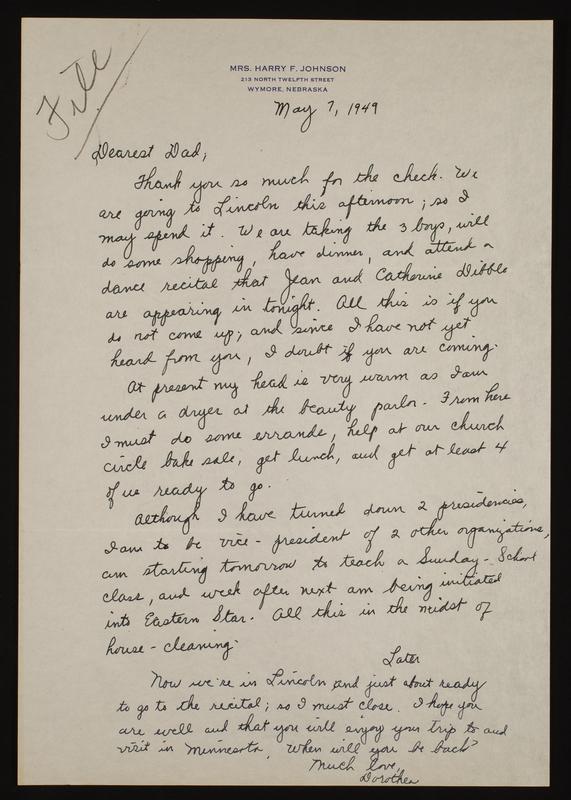 File
MRS. HARRY F. JOHNSON
213 NORTH TWELFTH STREET
WYMORE, NEBRASKA
May 7, 1949
Dearest Dad,
Thank you so much for the check. We
are going to Lincoln this afternoon; so I
may spend it. We are taking the 3 boys, will
do some shopping, have dinner, and attend a
dance recital that Jean and Catherine Dibble
are appearing in tonight. All this is if you
do not come up; and since I have not yet
heard from you, I doubt if you are coming.
At present my head is very warm as I am
under a dryer at the beauty parlor. From here
I must do some errands, help at our church
circle bake sale, get lunch, and get at least 4
of us ready to go.
Although I have turned down 2 presidencies,
I am to be vice-president of 2 other organizations,
am starting tomorrow to teach a Sunday-School
class, and week after next am being initiated
into Eastern Star. All this in the midst of
house-cleaning.
Later
Now we're in Lincoln and just about ready
to go to the recital; so I must close. I hope you
are well and that you will enjoy your trip to and
visit in Minnesota. When will you be back?
Much love,
Dorothea